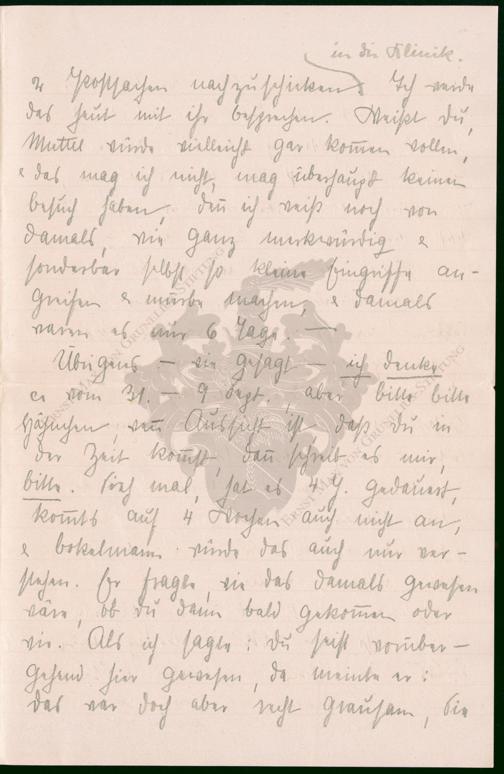 in die Klinik.
& Postsachen nachzuschicken. Ich werde
das heut mit ihr besprechen. Weißt Du,
Muttel würde vielleicht gar kom̄en wollen,
& das mag ich nicht, mag überhaupt keinen
besuch haben, den̄ ich weiß noch von
damals, wie ganz merkwürdig &
sonderbar selbst so kleine Eingriffe an-
greifen & mürbe machen, & damals
waren es nur 6 Tage. —
Übrigens — wie gesagt — ich denke
ca vom 31. – 9 Sept., aber bitte bitte
Hähnchen, wen̄ Aussicht ist daß Du in
der Zeit kom̄st, dan̄ schreib es mir,
bitte. mal, hat es 4 J. gedauert,
kom̄ts auf 4 Wochen auch nicht an,
& bokelmann würde das auch nur ver-
stehen. Er fragte, wie das damals gewesen
wäre, ob Du dann bald gekom̄en oder
wie. Als ich sagte: Du seist vorüber-
gehend hier gewesen, da meinte er:
das war doch aber recht grausam, Sie
ERNST MAX VON GRUNELIUS-STIFTUNG
ERNST MAX VON GRUNELIUS-STIFTUNG